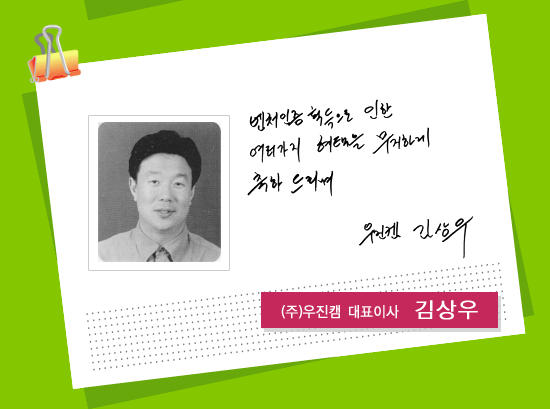 벤처인증 획득으로 인한
여러가지 혜택을 무지하게
축하 드리며
우진캠 김상우
(주)우진캠 대표이사 김상우